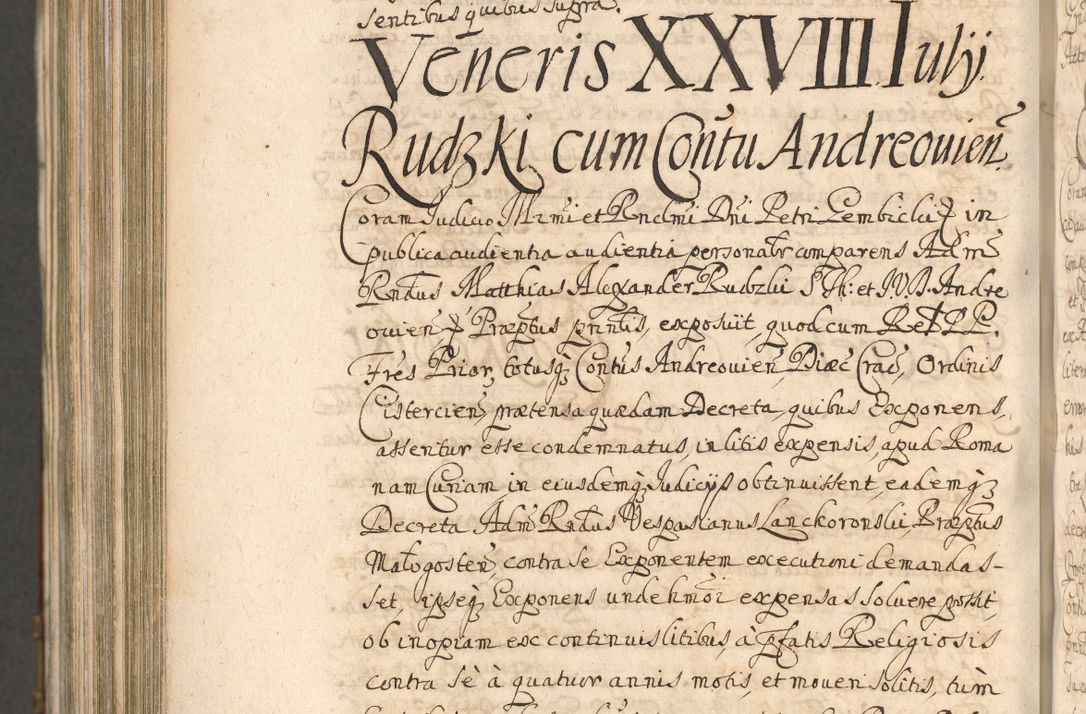 sentibus quibus supra.
Veneris XXVIII. Iulij.
Rudzki cum Conũtu Andreouień.
Coram Iudicio Illrmi et Rndmi Dni Petri Gembicki in
publica audientia audientia personalr comparens Adm
Rndus Matthias Alexander Rudzki S. Th: et I.V.D. Andre
ouień Præptus prntis, exposuit, quod cum Re PP.
Fres Prior, totusq Contus Andreouień, Diæc Crac, Ordinis
Cisterciens, prætensa quædam Decreta, quibus Exponens,
asseritur esse condemnatus, in litis expensis, apud Roma
nam Curiam, in eiusdemq Iudicijs obtinuissent, eademq
Decreta Adm Rndus Vespasianus Lanckoronski, Præptus
Małogosteń, contra se Exponentem executioni demandas-
set, ipseq Exponens unde hmoi expensas soluere possit,
ob inopiam ex continuis litibus, à pfatis Religiosis
contra sè à quatuor annis motis, et moueri solitis, tùm